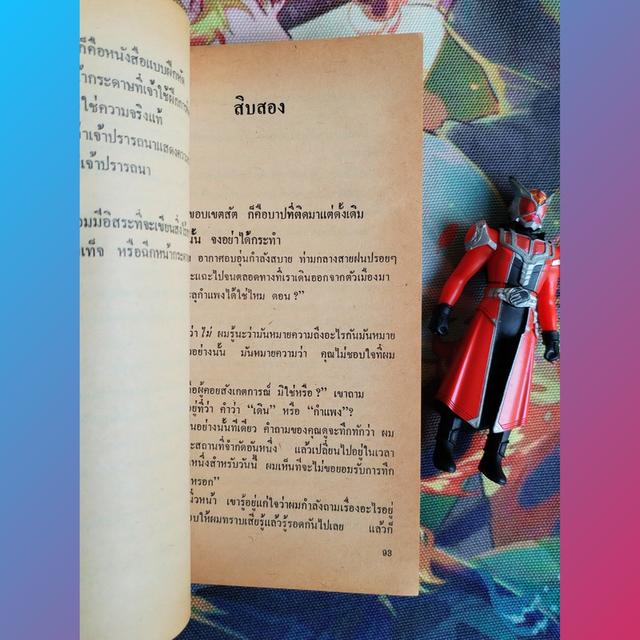 ก็คือหนังสือแบบฝึกหัด
กระดาษที่เจ้าใช้ฝึก
ใช่ความจริงแท้
เจ้าปรารถนาแสดงความ
เจ้าปรารถนา
มีอิสระที่จะเขียนสิ่ง
เท็จ หรือฉีกหน้ากระดาษ
สิบสอง
ขอบเขตสัต ก็คือบาปที่ติดมาแต่ดั้งเดิม
นั้น จงอย่าได้กระทำ
อากาศอบอุ่นกำลังสบาย ท่ามกลางสายฝนปรอยๆ
ะแถะไปจนตลอดทางที่เราเดินออกจากตัวเมืองมา
ลุกำแพงได้ใช่ไหม ดอน ?”
ว่า ไม่ ผมรู้นะว่ามันหมายความถึงอะไรกันมันหมาย
อย่างนั้น มันหมายความว่า คุณไม่ชอบใจที่ผม
ือผู้คอยสังเกตการณ์ มิใช่หรือ ?” เขาถาม
ยู่ที่ว่า คำว่า “เดิน” หรือ “กำแพง” ?
นอย่างนั้นทีเดียว คำถามของคุณดูจะทึกทักว่า ผม
ะสถานที่จำกัดอันหนึ่ง แล้วเปลี่ยนไปอยู่ในเวลา
หนึ่งสำหรับวันนี้ ผมเห็นที่จะไม่ขอยอมรับการทึก
หรอก”
นิ่วหน้า เขารู้อยู่แก่ใจว่าผมกำลังถามเรื่องอะไรอยู่
อบให้ผมทราบเสียรู้แล้วรู้รอดกันไปเลย แล้วก็
93